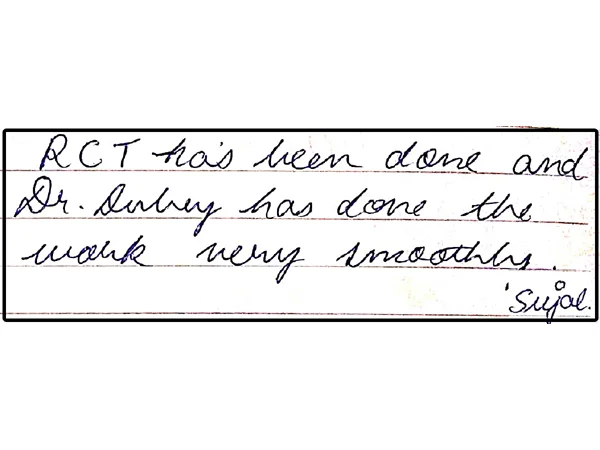 RCT has been done and
Dr. Dubey has done the
work very smoothly.
Sujal.